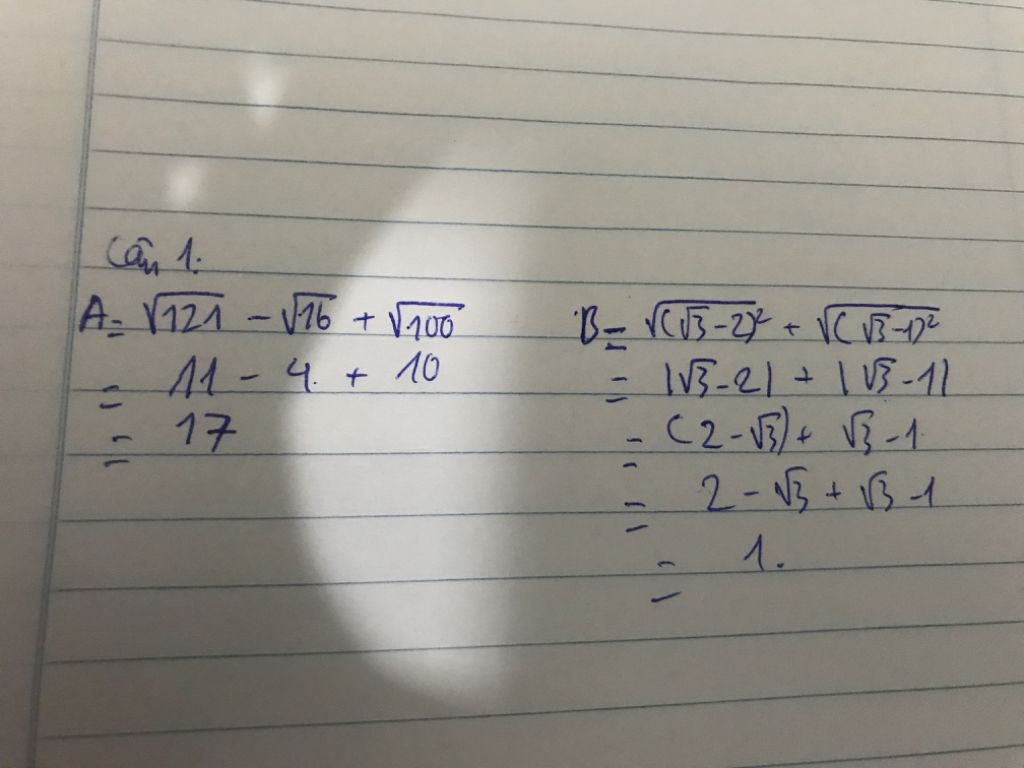 Câu 1.
A = √121 - √16 + √100
= 11 - 4 + 10
= 17
B = √(√3-2)² + √(√3-1)²
= |√3-2| + |√3-1|
= (2-√3) + √3-1
= 2 - √3 + √3 -1
= 1.